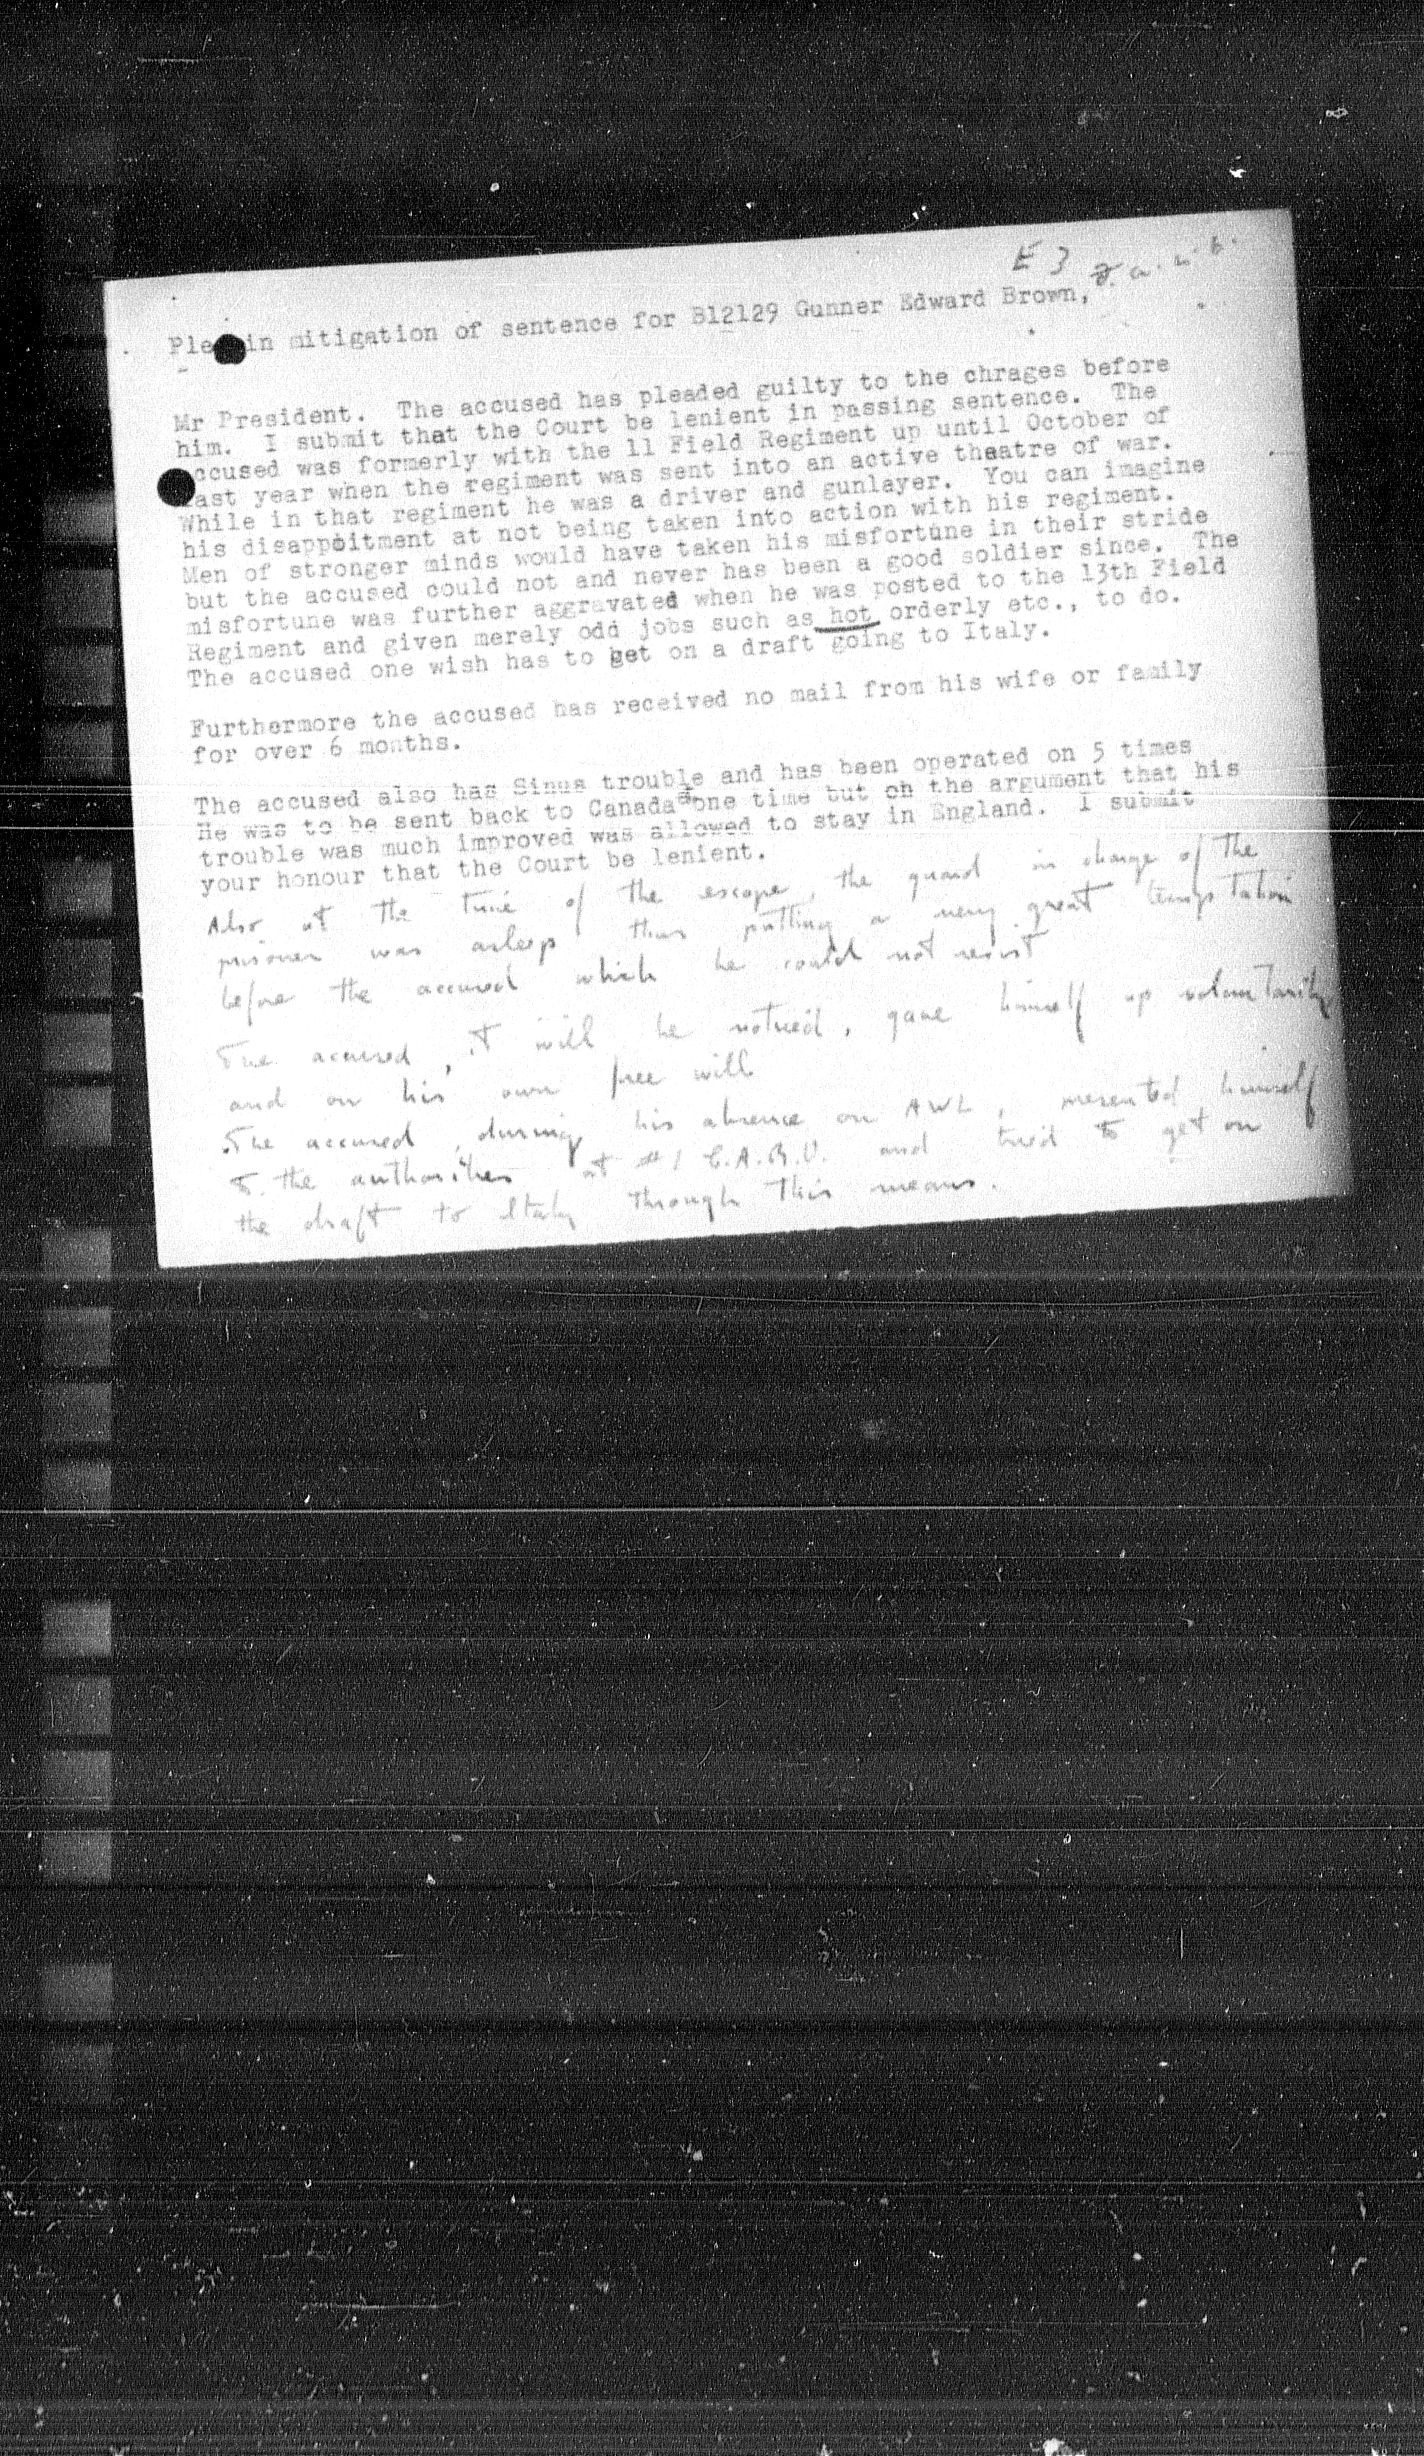 E 3
Plea in mitigation of sentence for B12129 Gunner Edward Brown,
Mr President. The accused has pleaded guilty to the chrages before
him. I submit that the Court be lenient in passing sentence. The
accused was formerly with the 11 Field Regiment up until October of
last year when the regiment was sent into an active theatre of war.
While in that regiment he was a driver and gunlayer. You can imagine
his disappoitment at not being taken into action with his regiment.
Men of stronger minds would have taken his misfortune in their stride
but the accused could not and never has been a good soldier since. The
misfortune was further aggravated when he was posted to the 13th Field
Regiment and given merely odd jobs such as hot orderly etc., to do.
The accused one wish has to get on a draft going to Italy.
Furthermore the accused has received no mail from his wife or family
for over 6 months.
The accused also has Sinus trouble and has been operated on 5 times
He was to be sent back to Canada at one time but on the argument that his
trouble was much improved was allowed to stay in England. I submit
your honour that the Court be lenient.
Also at the time of the escape, the guard in charge of the
prisoner was asleep thus putting a very great temptation
before the accused which he could not resist
The accused, it will be noticed, gave himself up voluntarily
and on his own free will
The accused, during his absence on AWL, presented himself
to the authorities at #1 C.A.R.U. and tried to get on
the draft to Italy through this means.